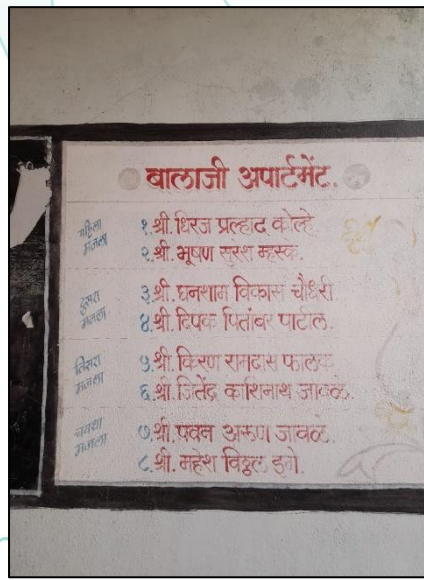 बालाजी अपार्टमेंट.
पहिला मजला
१. श्री. धिरज प्रल्हाद कोल्हे
२. श्री. भूषण सुरेश म्हस्के.
दुसरा मजला
३. श्री. घनशाम विकास चौधरी
४. श्री. दिपक पितांबर पाटील.
तिसरा मजला
५. श्री. किरण रामदास फालक
६. श्री. जितेंद्र काशिनाथ जावळे.
चवथा मजला
७. श्री. पवन अरूण जावळे.
८. श्री. महेश विठ्ठल इगे.